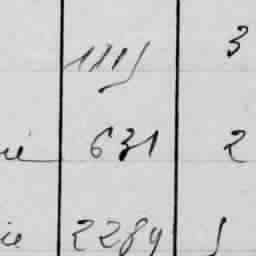 1115 3
ie 631 2
ie 2289